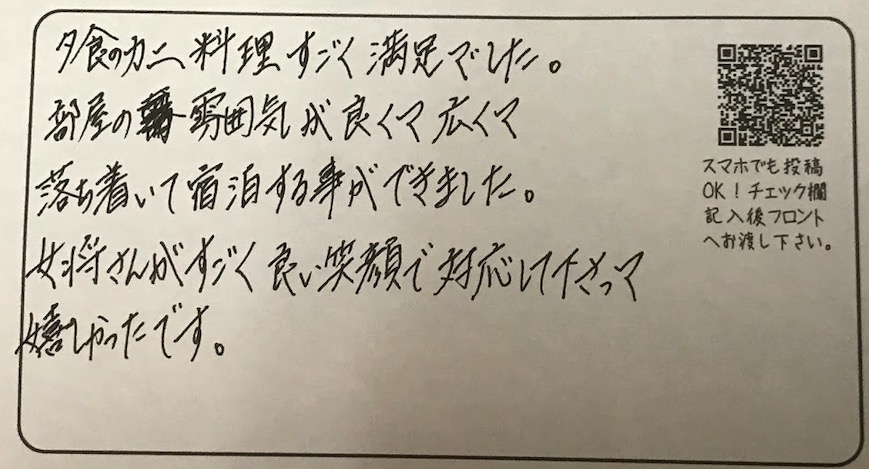 夕食のカニ料理すごく満足でした。
部屋の雰囲気が良くて広くて
落ち着いて宿泊する事ができました。
女将さんがすごく良い笑顔で対応して下さって
嬉しかったです。
スマホでも投稿
OK！チェック欄
記入後フロント
へお渡し下さい。